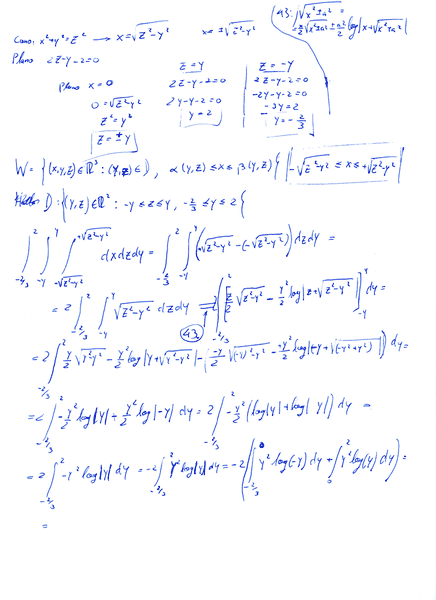 Cono: x²+y²=z² → x=√z²-y² x=±√z²-y²
43: ∫√x²±a² =
= x/2 √x²±a² ± a²/2 log|x+√x²±a²|
Plano 2z-y-2=0
z=y z=-y
Plano x=0 2z-y-2=0 2z-y-2=0
0=√z²-y² 2y-y-2=0 -2y-y-2=0
z²=y² y=2 -3y=2
z=±y y=-2/3
W = {(x,y,z)∈ℝ³: (y,z)∈D, α(y,z)≤x≤β(y,z)} -√z²-y² ≤ x ≤ +√z²-y²
D: {(y,z)∈ℝ²: -y≤z≤y, -2/3≤y≤2}
∫_{-2/3}^{2} ∫_{-y}^{y} ∫_{-√z²-y²}^{+√z²-y²} dxdzdy = ∫_{-2/3}^{2} ∫_{-y}^{y} (+√z²-y² - (-√z²-y²)) dzdy =
= 2 ∫_{-2/3}^{2} ∫_{-y}^{y} √z²-y² dzdy = 2 ∫_{-2/3}^{2} [z/2 √z²-y² - y²/2 log|z+√z²-y²|]_{-y}^{y} dy =
43
= 2 ∫_{-2/3}^{2} y/2 √y²-y² - y²/2 log|y+√y²-y²| - (-y/2 √(-y)²-y² - y²/2 log|-y+√(-y²+y²)|) dy =
= 2 ∫_{-2/3}^{2} -y²/2 log|y| + y²/2 log|-y| dy = 2 ∫_{-2/3}^{2} -y²/2 (log|y|+log|y|) dy =
= 2 ∫_{-2/3}^{2} -y² log|y| dy = -2 ∫_{-2/3}^{2} y² log|y| dy = -2 (∫_{-2/3}^{0} y² log(-y) dy + ∫_{0}^{2} y² log(y) dy) =
=